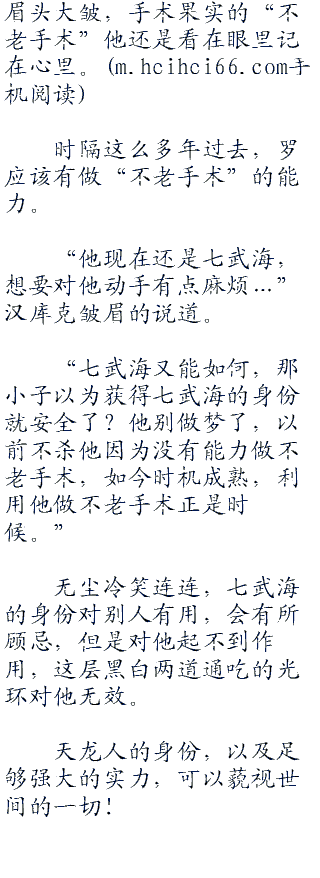 眉头大皱，手术果实的“不
老手术”他还是看在眼里记
在心里。(m.hcihci66.com手
机阅读)
时隔这么多年过去，罗
应该有做“不老手术”的能
力。
“他现在还是七武海，
想要对他动手有点麻烦…”
汉库克皱眉的说道。
“七武海又能如何，那
小子以为获得七武海的身份
就安全了？他别做梦了，以
前不杀他因为没有能力做不
老手术，如今时机成熟，利
用他做不老手术正是时
候。”
无尘冷笑连连，七武海
的身份对别人有用，会有所
顾忌，但是对他起不到作
用，这层黑白两道通吃的光
环对他无效。
天龙人的身份，以及足
够强大的实力，可以藐视世
间的一切！